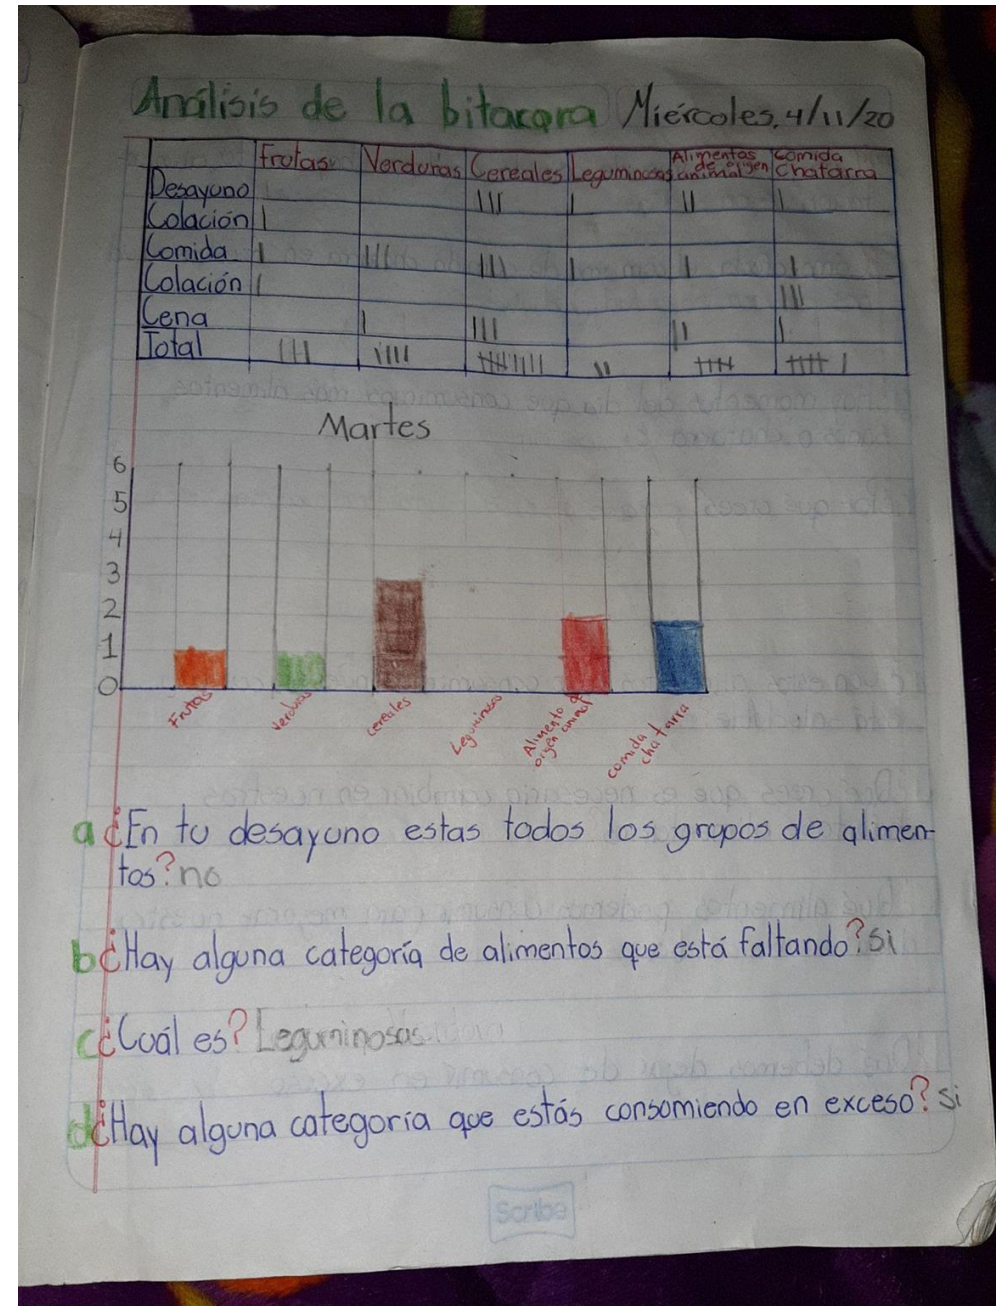 Análisis de la bitacora Miércoles, 4/11/20
Frutas Verduras Cereales Leguminosas Alimentos de origen animal Comida Chatarra
Desayuno ||| | || |
Colación |
Comida | |||| ||| | | |
Colación | |||
Cena | ||| || |
Total ||| |||| || |
Martes
6
5
4
3
2
1
0
Frutas Verduras cereales Leguminosas Alimento d origen animal comida chatarra
a ¿En tu desayuno estas todos los grupos de alimen-
tos? no
b ¿Hay alguna categoría de alimentos que está faltando? si
c ¿Cuál es? Leguminosas
d ¿Hay alguna categoria que estás consumiendo en exceso? si
Scribe